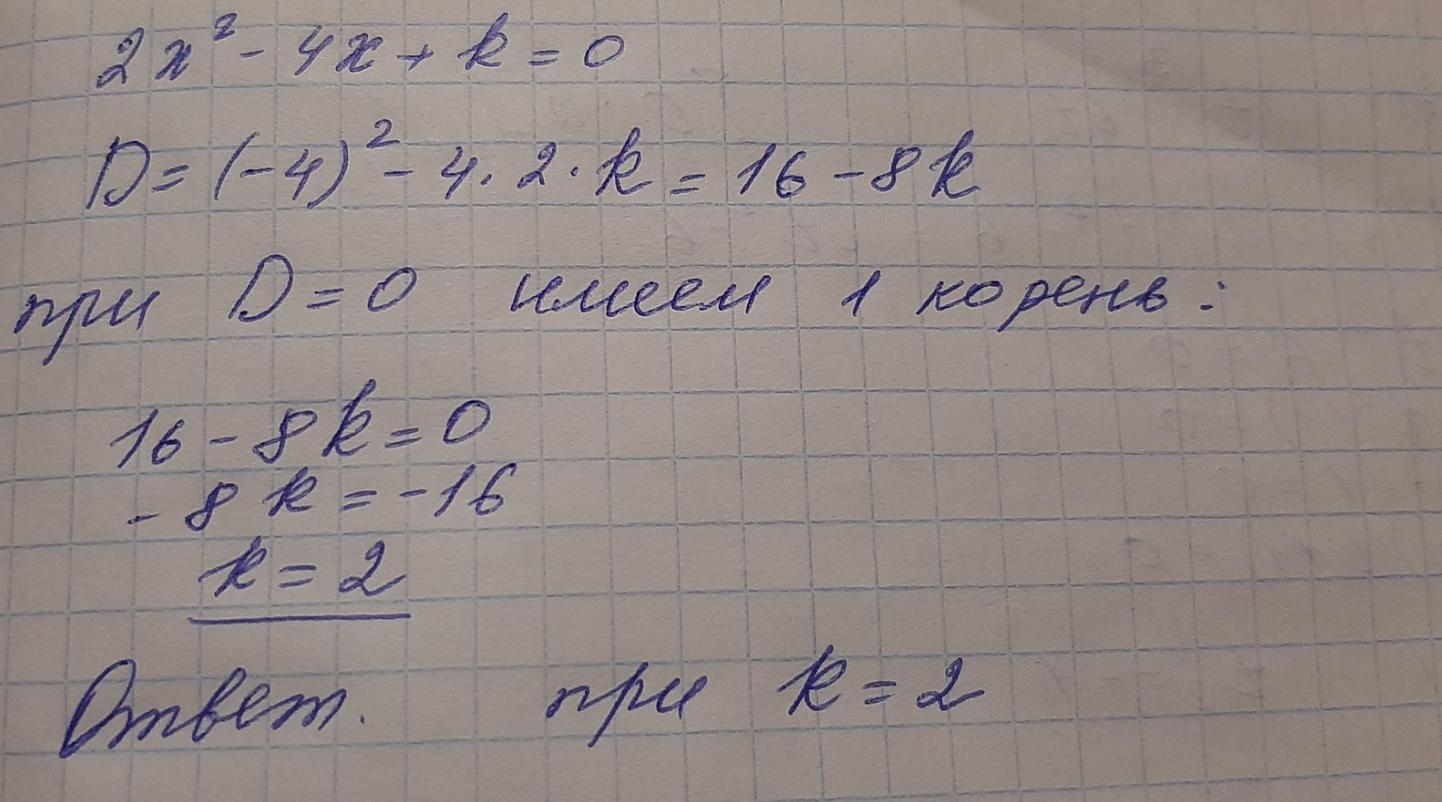 2x² - 4x + k = 0
D = (-4)² - 4 · 2 · k = 16 - 8k
при D = 0 имеем 1 корень:
16 - 8k = 0
- 8k = -16
k = 2
Ответ. при k = 2